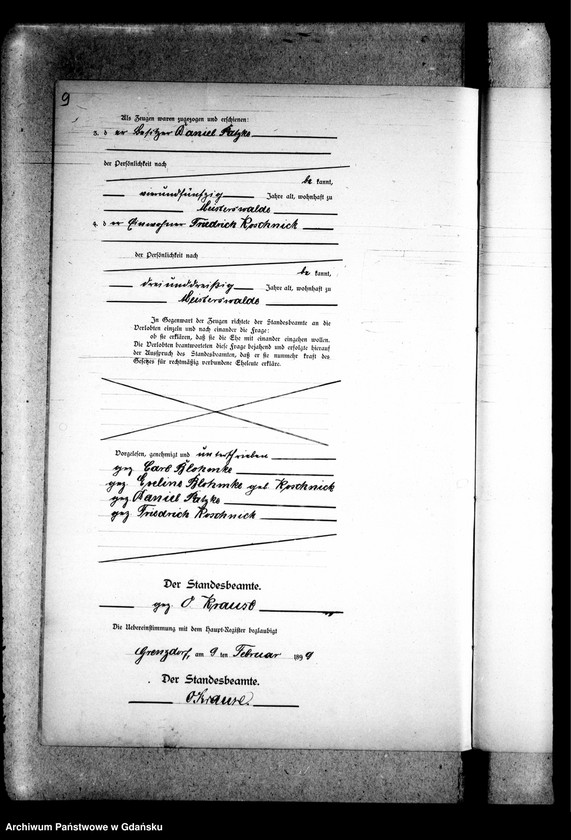 9
Als Zeugen waren zugezogen und erschienen:
3. der Besitzer Daniel Patzke
der Persönlichkeit nach
be kannt,
vierundfünfzig Jahre alt, wohnhaft zu
Meisterswalde
4. der Einwohner Friedrich Koschnick
der Persönlichkeit nach
be kannt,
dreiunddreißig Jahre alt, wohnhaft zu
Meisterswalde
In Gegenwart der Zeugen richtete der Standesbeamte an die
Verlobten einzeln und nach einander die Frage:
ob sie erklären, daß sie die Ehe mit einander eingehen wollen.
Die Verlobten beantworteten diese Frage bejahend und erfolgte hierauf
der Ausspruch des Standesbeamten, daß er sie nunmehr kraft des
Gesetzes für rechtmäßig verbundene Eheleute erkläre.
Vorgelesen, genehmigt und unterschrieben
gez Carl Blohmke
gez Eveline Blohmke geb Koschnick
gez Daniel Patzke
gez Friedrich Koschnick
Der Standesbeamte.
gez O Krause
Die Uebereinstimmung mit dem Haupt-Register beglaubigt
Grenzdorf, am 9 ten Februar 1899
Der Standesbeamte.
O Krause.
Archiwum Państwowe w Gdańsku